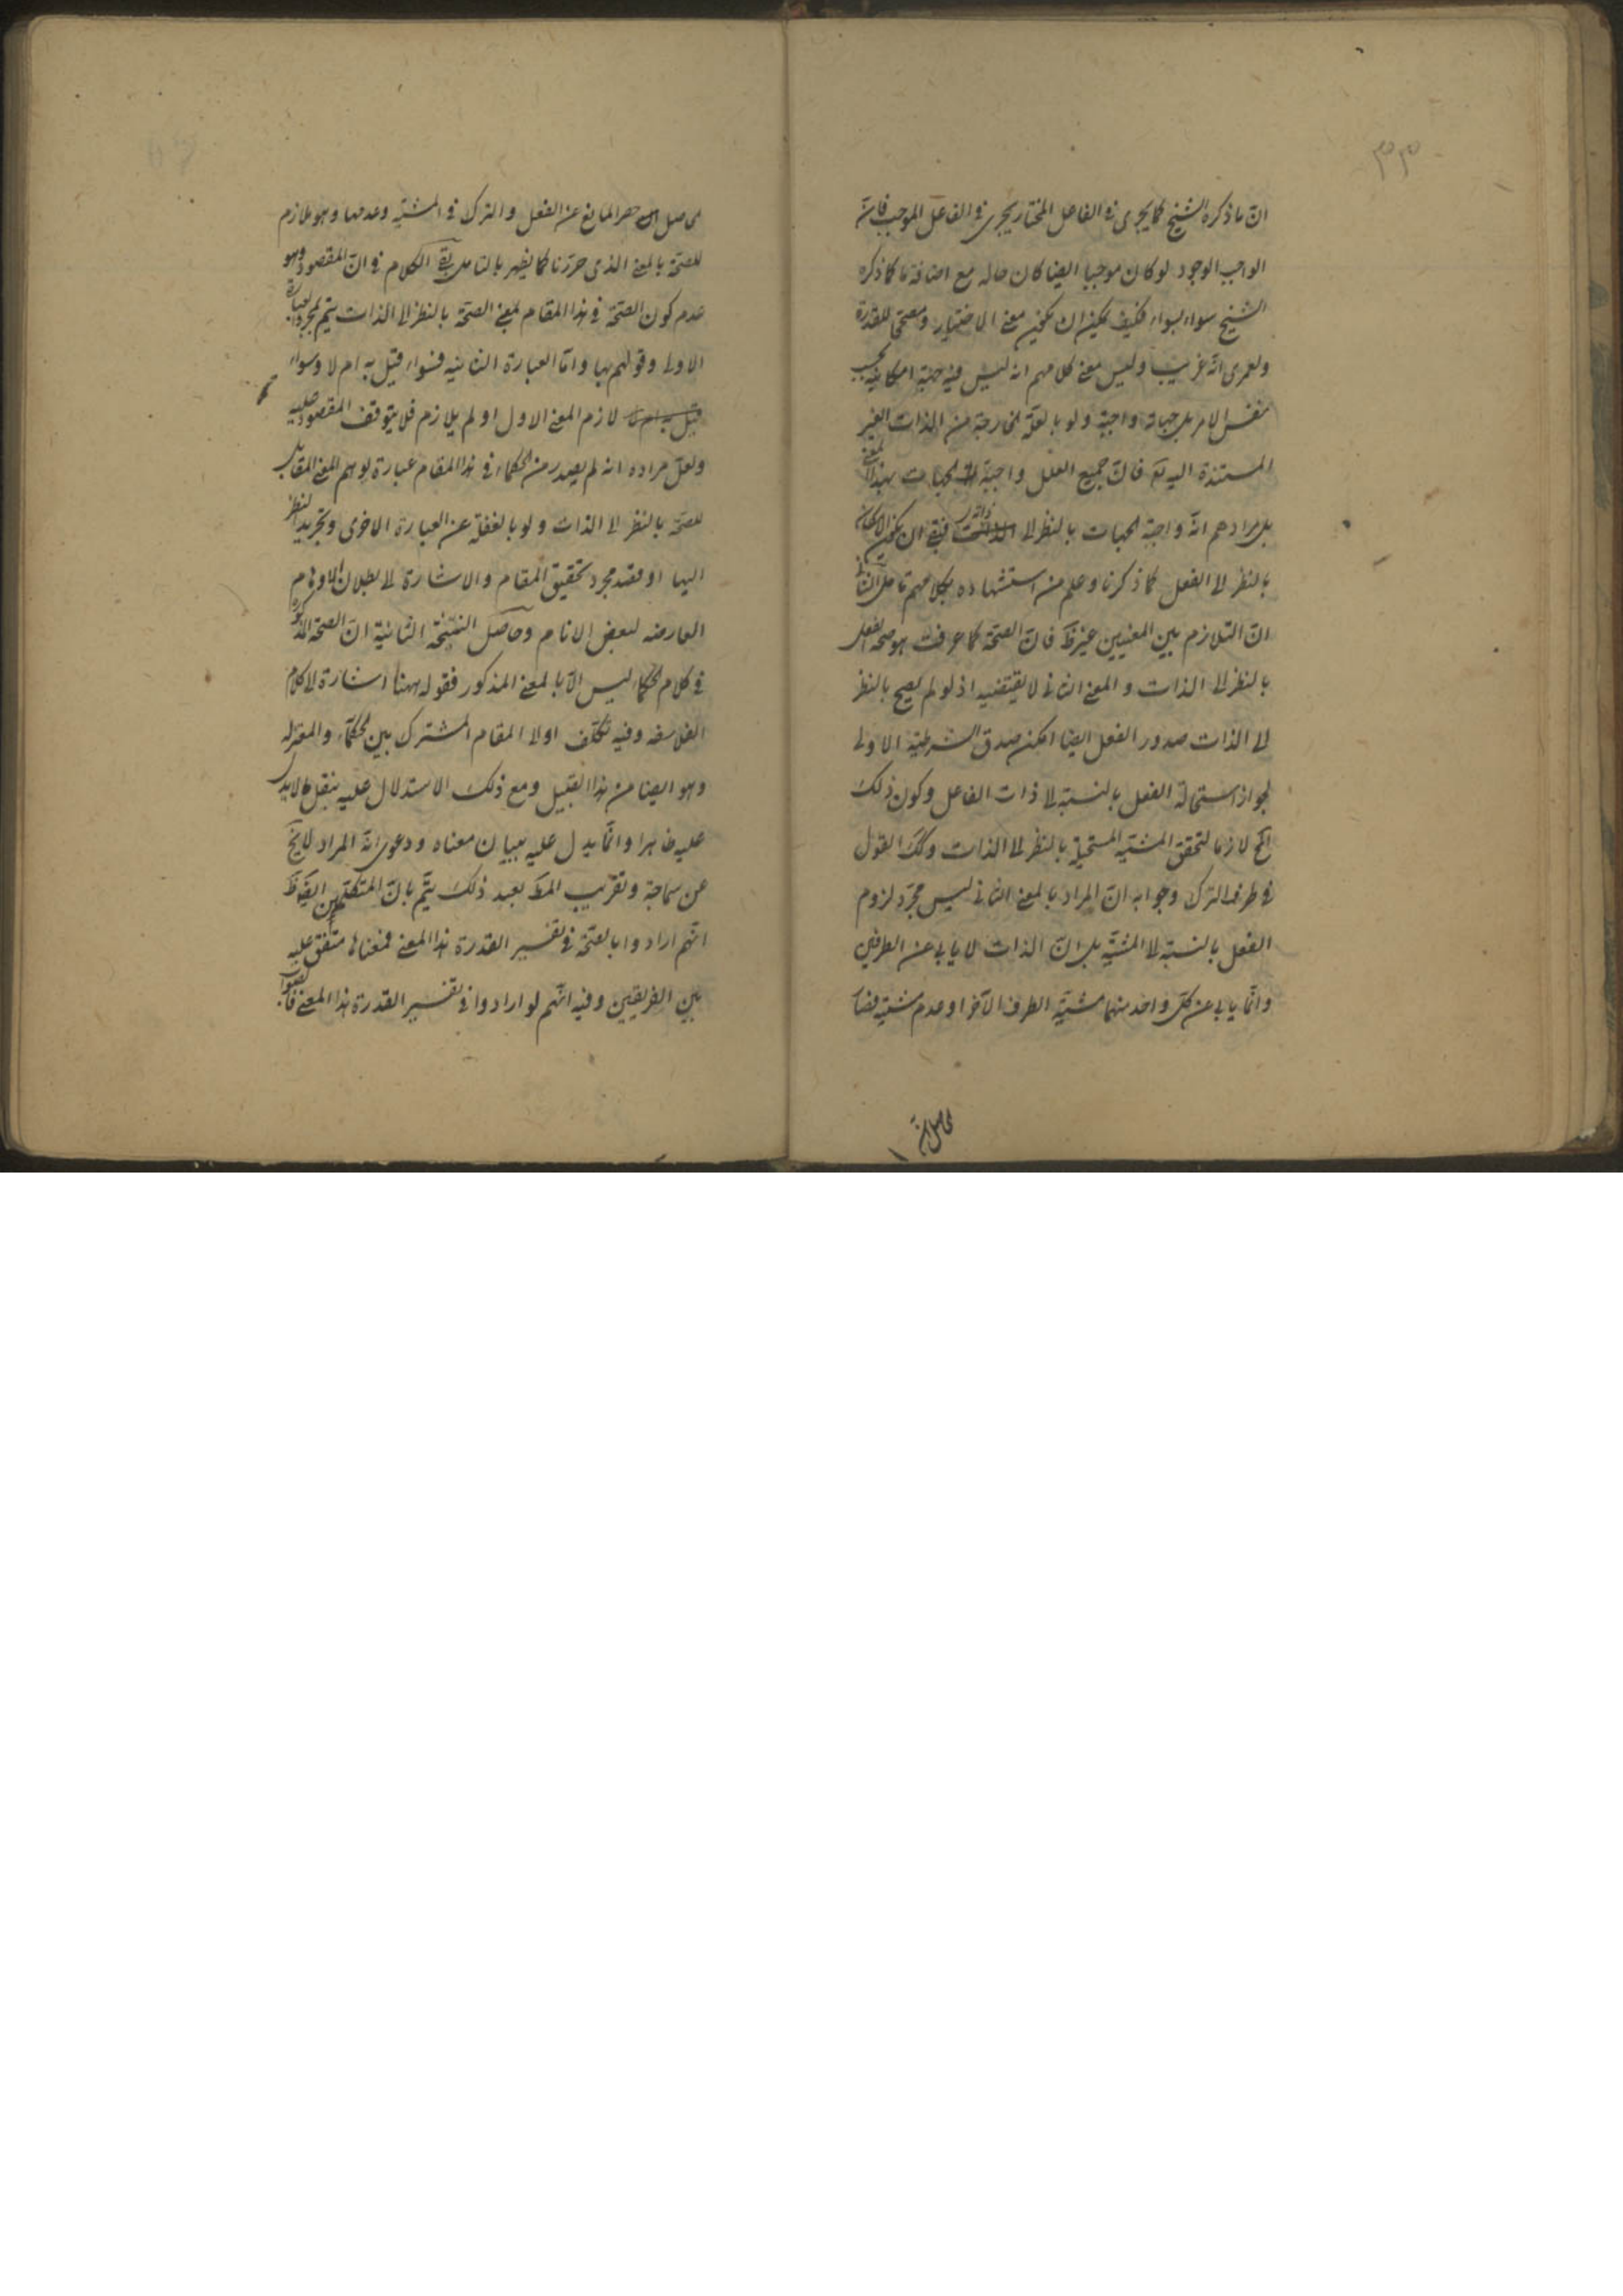 ٣٣
ان ما ذكره الشيخ كما يجرى فى الفاعل المختار يجرى فى الفاعل الموجب فان
الواجب الوجود لو كان موجبا ايضا كان حاله مع اضافة ما كما ذكره
الشيخ سواء بسواء فكيف يمكن ان يكون معنى الاختيار ومصححا للقدرة
ولعمرى انه غريب وليس معنى كلامهم انه ليس فيه جهة امكانية بحسب
نفس الامر بل جهاته واجبة ولو بالعلة الخارجة من الذات الغير
المستندة اليه تع فان جميع العلل واجبة الجهات بهذا المعنى
بل مرادهم انه واجبة الجهات بالنظر الى ذاته فينبغى ان يكون الامكان
بالنظر الى الفعل كما ذكرنا وعلم من استشهاده بكلامهم تامل الثانى
ان التلازم بين المعنيين غير ظ فان الصحة كما عرفت هو صحة الفعل
بالنظر الى الذات والمعنى الثانى لا يقتضيه اذ لو لم يصح بالنظر
الى الذات صدور الفعل ايضا امكن صدق الشرطية الاولى
لجواز استحالة الفعل بالنسبة الى ذات الفاعل وكون ذلك
المح لازما لتحقق المشية المستحيلة بالنظر الى الذات وكك القول
فى طرف الترك وجوابه ان المراد بالمعنى الثانى ليس مجرد لزوم
الفعل بالنسبة الى المشية بل ان الذات لا يابى عن الطرفين
وانما يابى عن كل واحد منهما مشية الطرف الآخر او عدم مشية فصا
حاصل
حاصل حصر المانع عن الفعل والترك فى المشية وعدمها وهو ملازم
للصحة بالمعنى الذى حررنا كما يظهر بالتامل بقى الكلام فى ان المقصود وهو
عدم كون الصحة فى هذا المقام بمعنى الصحة بالنظر الى الذات يتم بمجرد العبارة
الاولى وقولهم بها واما العبارة الثانية فسواء قيل به ام لا وسواء
لازم المعنى الاول او لم يلازم فلا يتوقف المقصود عليه
ولعل مراده انه لم يصدر من الحكماء فى هذا المقام عبارة يوهم المعنى المقابل
للصحة بالنظر الى الذات ولو بالغفلة عن العبارة الاخرى وتجريد النظر
اليها او قصد مجرد تحقيق المقام والاشارة الى بطلان الاوهام
العارضه لبعض الانام وحاصل النسخة الثانية ان الصحة المذكوره
فى كلام الحكماء ليس الا بالمعنى المذكور فقوله ههنا اشارة الى كلام
الفلاسفه وفيه تكلف او الى المقام المشترك بين الحكماء والمعتزله
وهو ايضا من هذا القبيل ومع ذلك الاستدلال عليه بنقل ما لا يدل
عليه ظاهرا وانما يدل عليه ببيان معناه ودعوى انه المراد لا يخ
عن سماجة وتقريب المط بعيد ذلك يتم بان المتكلمين ايض
انهم ارادوا بالصحة فى تفسير القدرة هذا المعنى فمعناها متفق عليه
بين الفريقين وفيه انهم لو ارادوا فى تفسير القدرة هذا المعنى